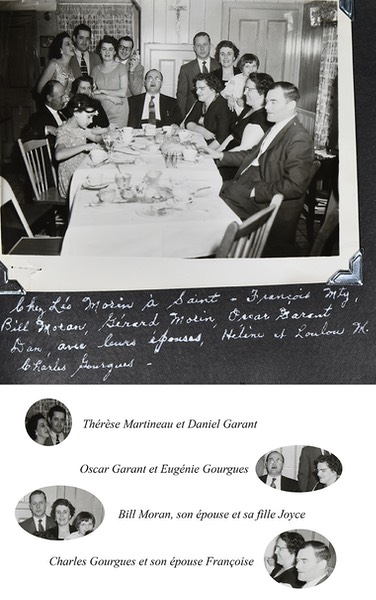 Chez Léo Morin à Saint-François Mtg,
Bill Moran, Gérard Morin, Oscar Garant
Dan, avec leurs épouses, Hélène et Loulou K.
Charles Gourgues -
Thérèse Martineau et Daniel Garant
Oscar Garant et Eugénie Gourgues
Bill Moran, son épouse et sa fille Joyce
Charles Gourgues et son épouse Françoise